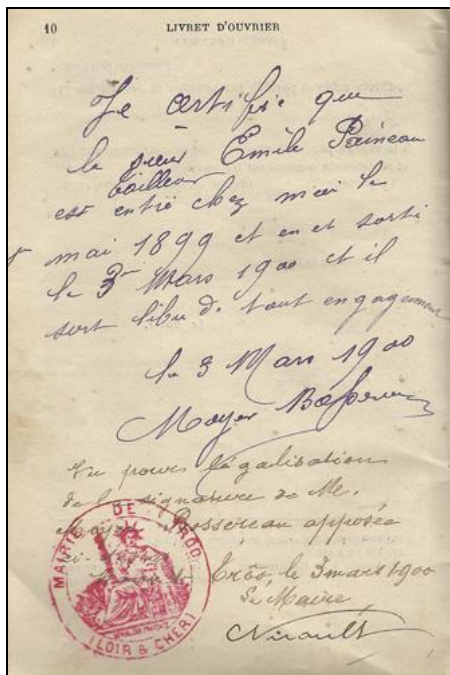 10 LIVRET D'OUVRIER
Je certifie que
le sieur Emile Paineau
tailleur
est entré chez moi le
mai 1899 et en et sorti
le 3 Mars 1900 et il
sort libre de tout engagement
le 3 Mars 1900
Moyer
Vu pour légalisation
de la signature de Me.
Moyer Bossereau apposée
ci-
Tröo, le 3 mars 1900
Le Maire,
MAIRIE DE TROO
(LOIR & CHER)